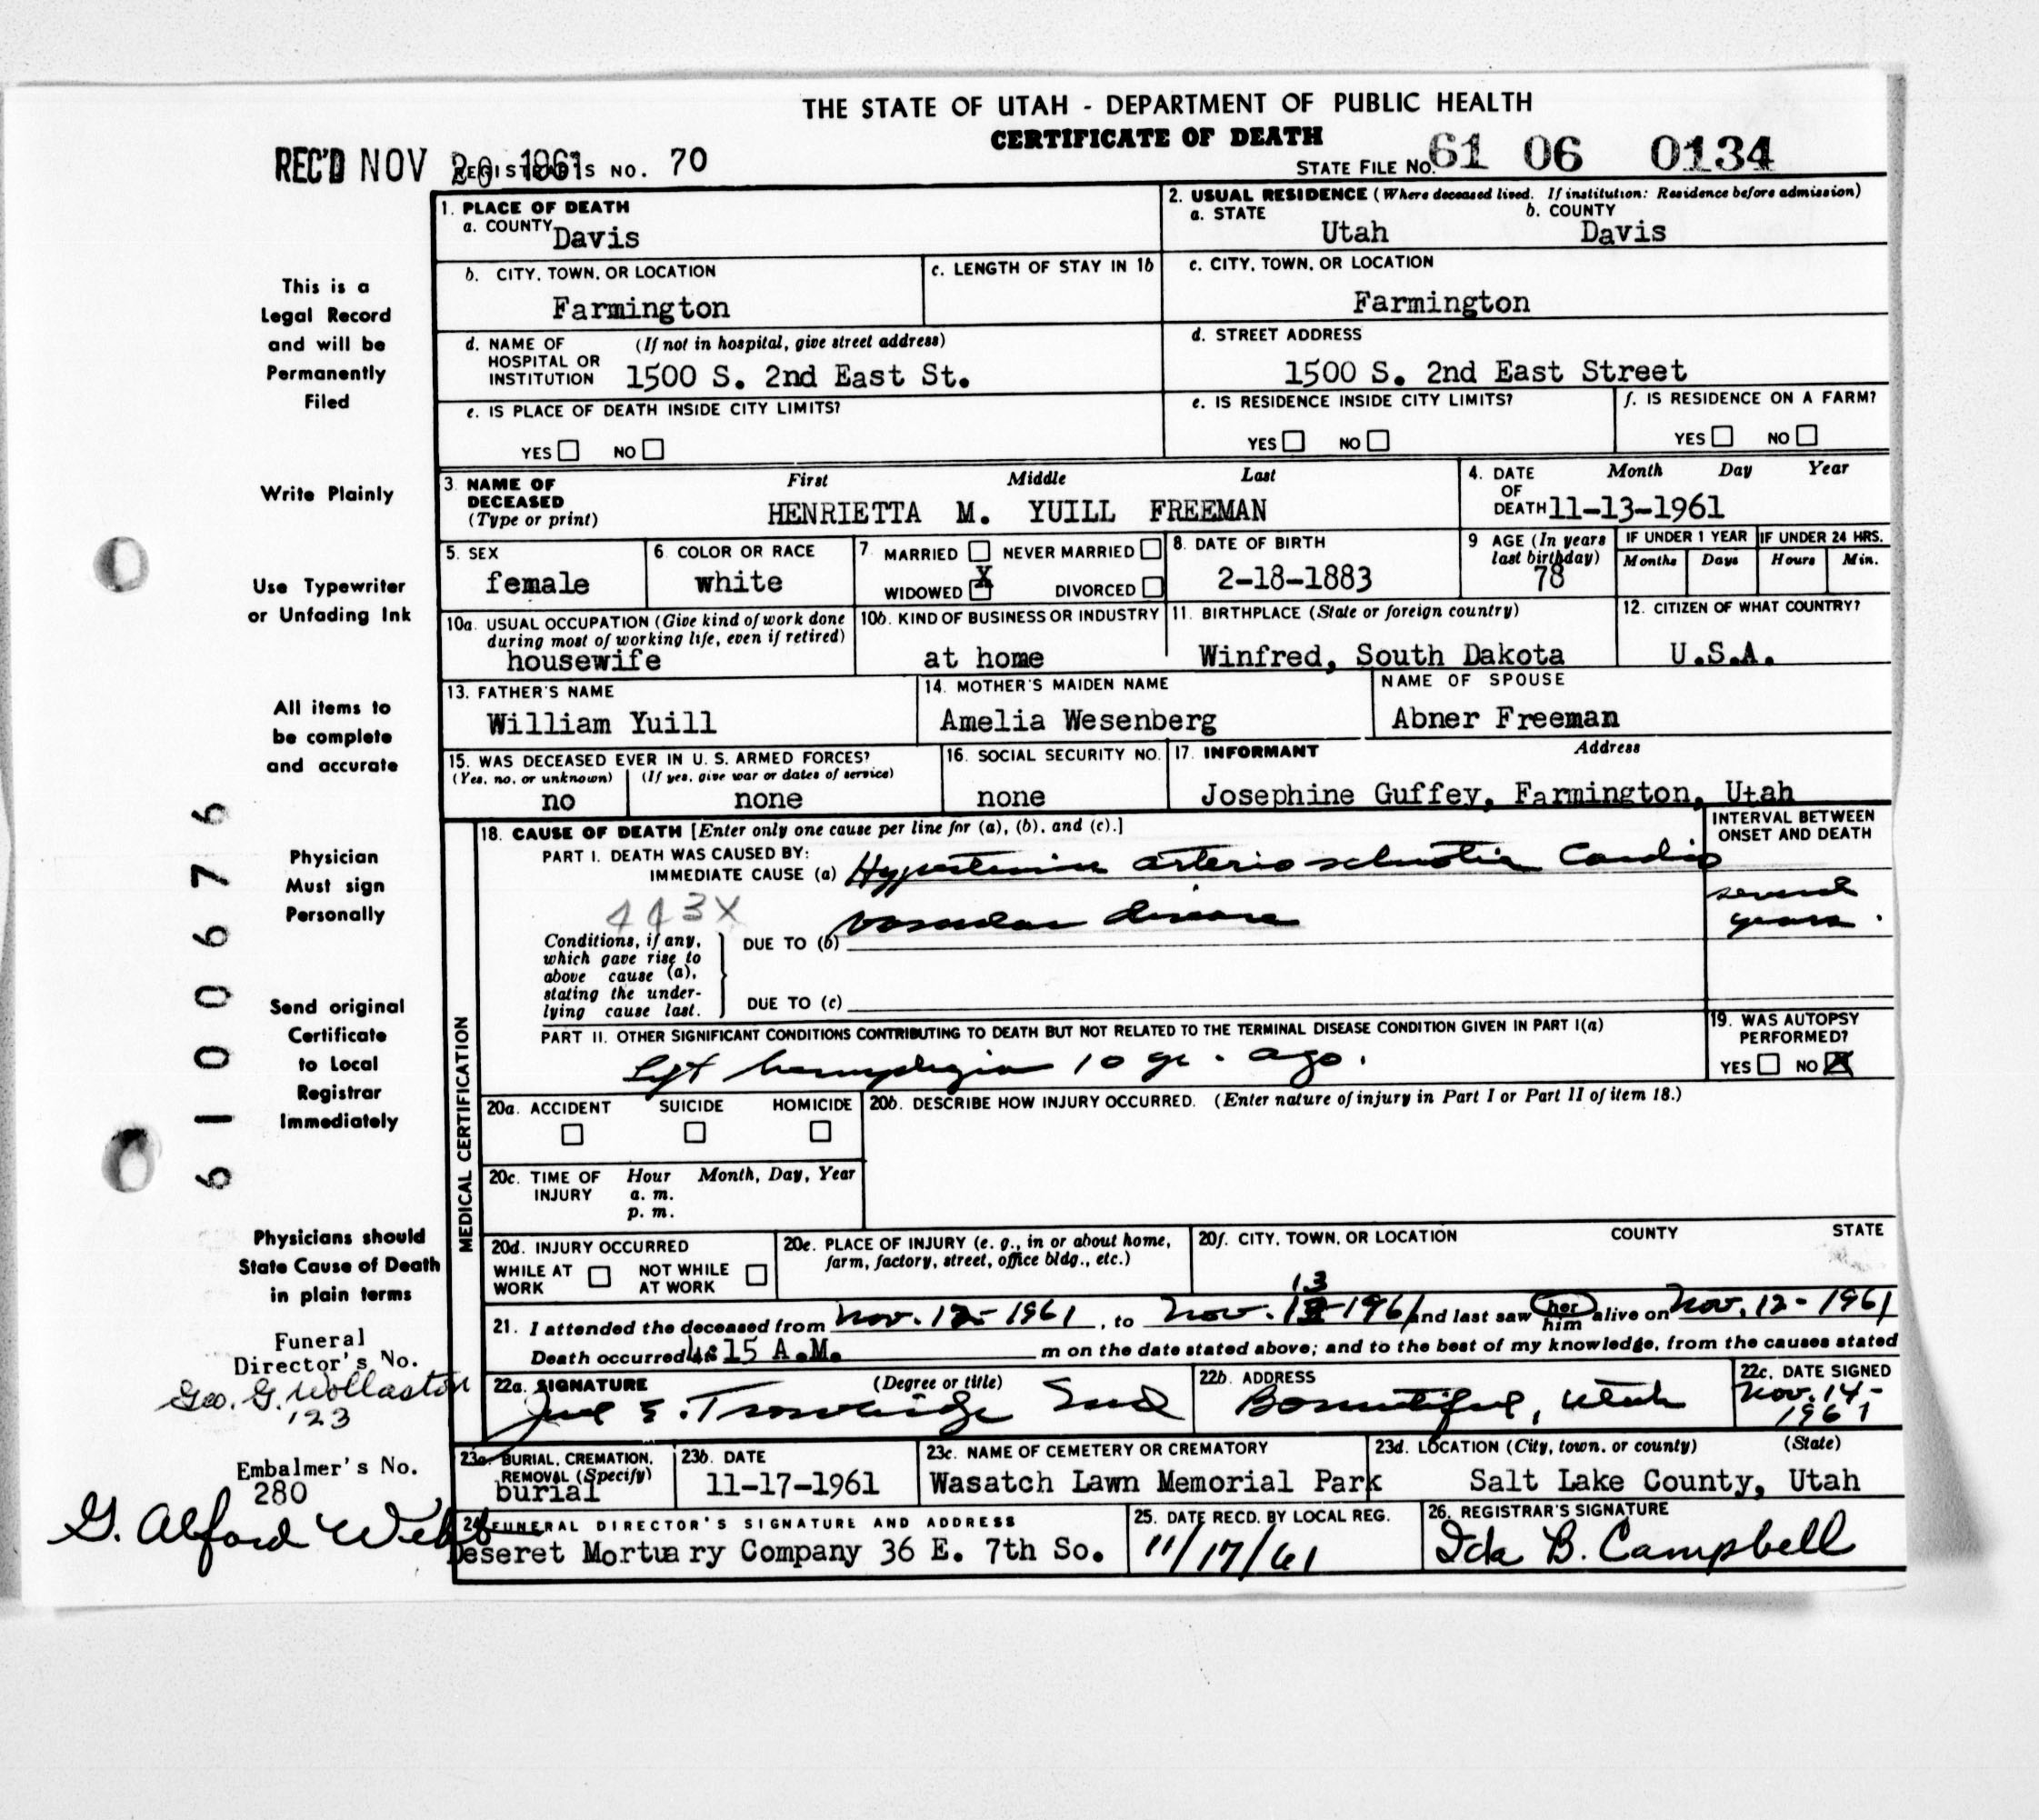 THE STATE OF UTAH - DEPARTMENT OF PUBLIC HEALTH
CERTIFICATE OF DEATH
REC'D NOV 20 1961 REGISTRAR'S NO. 70
STATE FILE NO. 61 06 0134
1. PLACE OF DEATH
a. COUNTY Davis
2. USUAL RESIDENCE (Where deceased lived. If institution: Residence before admission)
a. STATE Utah b. COUNTY Davis
b. CITY, TOWN, OR LOCATION Farmington
c. LENGTH OF STAY IN 1b
c. CITY, TOWN, OR LOCATION Farmington
d. NAME OF HOSPITAL OR INSTITUTION (If not in hospital, give street address) 1500 S. 2nd East St.
d. STREET ADDRESS 1500 S. 2nd East Street
e. IS PLACE OF DEATH INSIDE CITY LIMITS? YES NO
e. IS RESIDENCE INSIDE CITY LIMITS? YES NO
f. IS RESIDENCE ON A FARM? YES NO
3. NAME OF DECEASED (Type or print) First Middle Last
HENRIETTA M. YUILL FREEMAN
4. DATE OF DEATH Month Day Year 11-13-1961
5. SEX female
6. COLOR OR RACE white
7. MARRIED NEVER MARRIED WIDOWED X DIVORCED
8. DATE OF BIRTH 2-18-1883
9 AGE (In years last birthday) 78
IF UNDER 1 YEAR Months Days
IF UNDER 24 HRS. Hours Min.
10a. USUAL OCCUPATION (Give kind of work done during most of working life, even if retired) housewife
10b. KIND OF BUSINESS OR INDUSTRY at home
11. BIRTHPLACE (State or foreign country) Winfred, South Dakota
12. CITIZEN OF WHAT COUNTRY? U.S.A.
13. FATHER'S NAME William Yuill
14. MOTHER'S MAIDEN NAME Amelia Wesenberg
NAME OF SPOUSE Abner Freeman
15. WAS DECEASED EVER IN U. S. ARMED FORCES?
(Yes, no, or unknown) no (If yes, give war or dates of service) none
16. SOCIAL SECURITY NO. none
17. INFORMANT Address Josephine Guffey, Farmington, Utah
MEDICAL CERTIFICATION
18. CAUSE OF DEATH [Enter only one cause per line for (a), (b), and (c).]
INTERVAL BETWEEN ONSET AND DEATH
PART I. DEATH WAS CAUSED BY:
IMMEDIATE CAUSE (a) Hypertensive arterio sclerotic Cardio
vascular disease
several years.
443X
Conditions, if any, which gave rise to above cause (a), stating the underlying cause last.
DUE TO (b)
DUE TO (c)
PART II. OTHER SIGNIFICANT CONDITIONS CONTRIBUTING TO DEATH BUT NOT RELATED TO THE TERMINAL DISEASE CONDITION GIVEN IN PART I(a)
Left hemiplegia 10 yr. ago.
19. WAS AUTOPSY PERFORMED? YES NO X
20a. ACCIDENT SUICIDE HOMICIDE
20b. DESCRIBE HOW INJURY OCCURRED. (Enter nature of injury in Part I or Part II of item 18.)
20c. TIME OF INJURY Hour Month, Day, Year
a. m.
p. m.
20d. INJURY OCCURRED WHILE AT WORK NOT WHILE AT WORK
20e. PLACE OF INJURY (e. g., in or about home, farm, factory, street, office bldg., etc.)
20f. CITY, TOWN, OR LOCATION COUNTY STATE
13
21. I attended the deceased from Nov. 12- 1961, to Nov. 13-1961 and last saw her him alive on Nov. 12 - 1961
Death occurred at 4:15 A.M. m on the date stated above; and to the best of my knowledge, from the causes stated
22a. SIGNATURE (Degree or title)
22b. ADDRESS Bountiful, Utah
22c. DATE SIGNED Nov. 14- 1961
23a. BURIAL, CREMATION, REMOVAL (Specify) burial
23b. DATE 11-17-1961
23c. NAME OF CEMETERY OR CREMATORY Wasatch Lawn Memorial Park
23d. LOCATION (City, town, or county) (State) Salt Lake County, Utah
24. FUNERAL DIRECTOR'S SIGNATURE AND ADDRESS
Deseret Mortuary Company 36 E. 7th So.
25. DATE RECD. BY LOCAL REG. 11/17/61
26. REGISTRAR'S SIGNATURE Ida B. Campbell
This is a
Legal Record
and will be
Permanently
Filed
Write Plainly
Use Typewriter
or Unfading Ink
All items to
be complete
and accurate
Physician
Must sign
Personally
Send original
Certificate
to Local
Registrar
Immediately
Physicians should
State Cause of Death
in plain terms
Funeral
Director's No.
Geo. G. Wollaston
123
Embalmer's No.
280
G. Alford Webb
61 00676